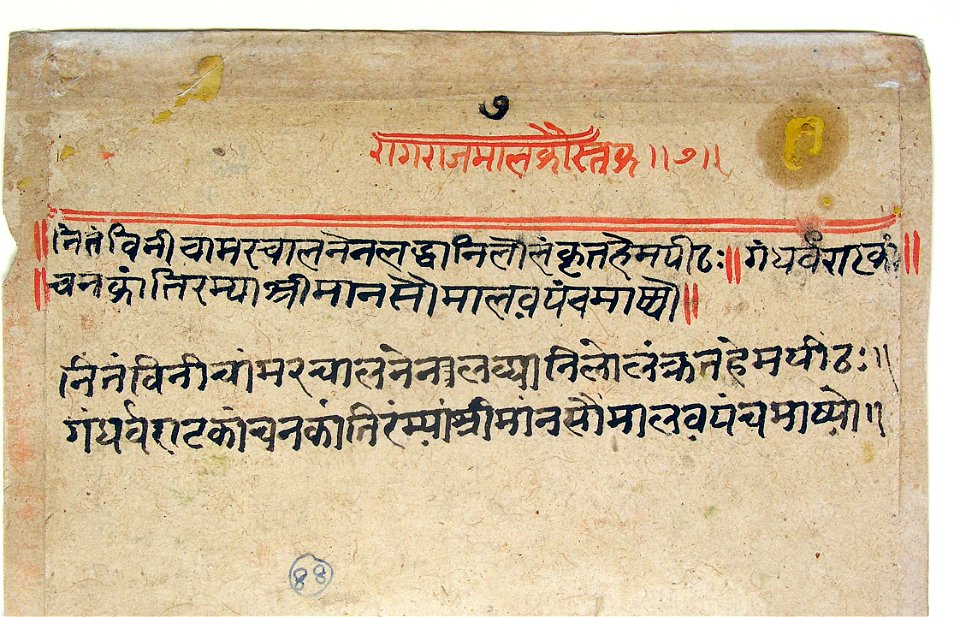 ७
रागराजमालकौस्तुक ॥७॥
॥नितंविनीचामरचालनेनलद्धानिलौलंकृतहेमपीठः॥गंधर्वराटकां॥
॥चनकांतिरम्याश्रीमानसौमालव़पंचमाष्यौ॥
नितंविनीचांमरचालनेनालव्यानिलोलंक्रतहेमपीठः॥
गंधर्वराटकांचनकांतिरंम्यांश्रीमांनसौमालव़पंचमाष्यो॥
४४